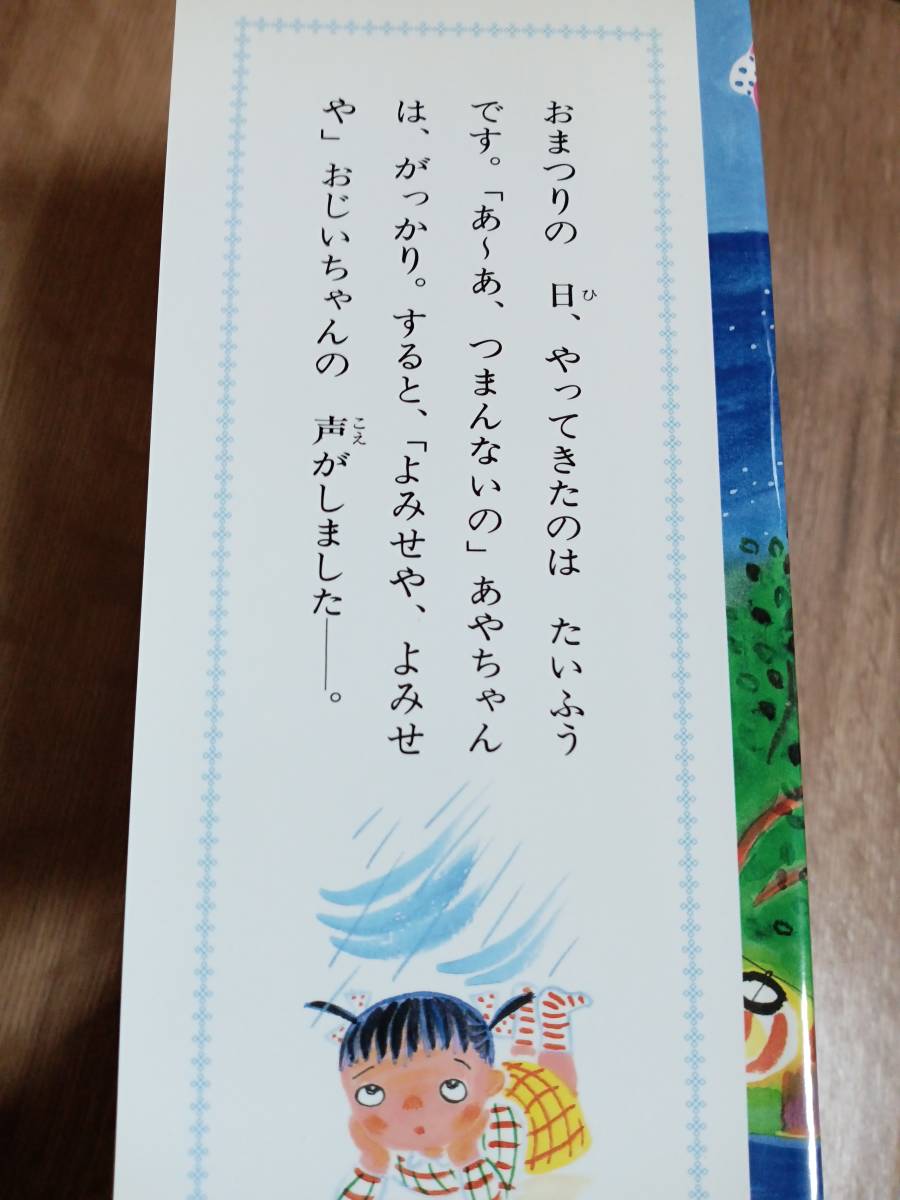 おまつりの　日、やってきたのは　たいふう
です。「あ～あ、つまんないの」あやちゃん
は、がっかり。すると、「よみせや、よみせ
や」おじいちゃんの　声がしました――。
ひ
こえ